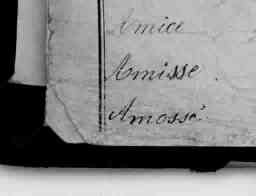 Amice
Amisse
Amossé